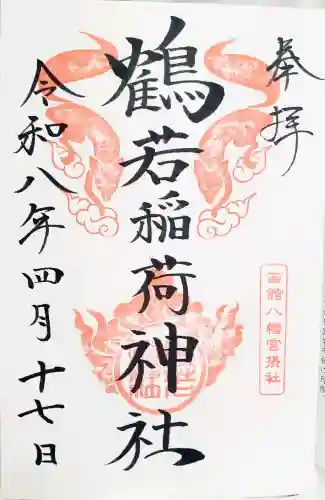 奉拝
鶴若稲荷神社
函館八幡宮摂社
令和八年四月十七日